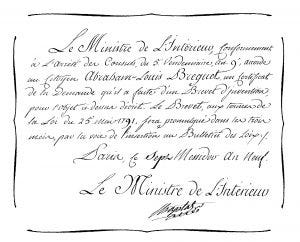 Le Ministre de l'Intérieur, Conformément
à l'Arrêté des Consuls, du 5 Vendémiaire an 9, accorde
au Citoyen Abraham-Louis Breguet, un Certificat
de la Demande qu'il a faite d'un Brevet d'Invention
pour l'objet ci-dessus décrit. Le Brevet, aux termes de
la Loi du 25 Mai 1791, sera promulgué dans les trois
mois, par la voie de l'insertion au Bulletin des Loix.
Paris, le Sept Messidor An Neuf.
Le Ministre de l'Intérieur
Chaptal